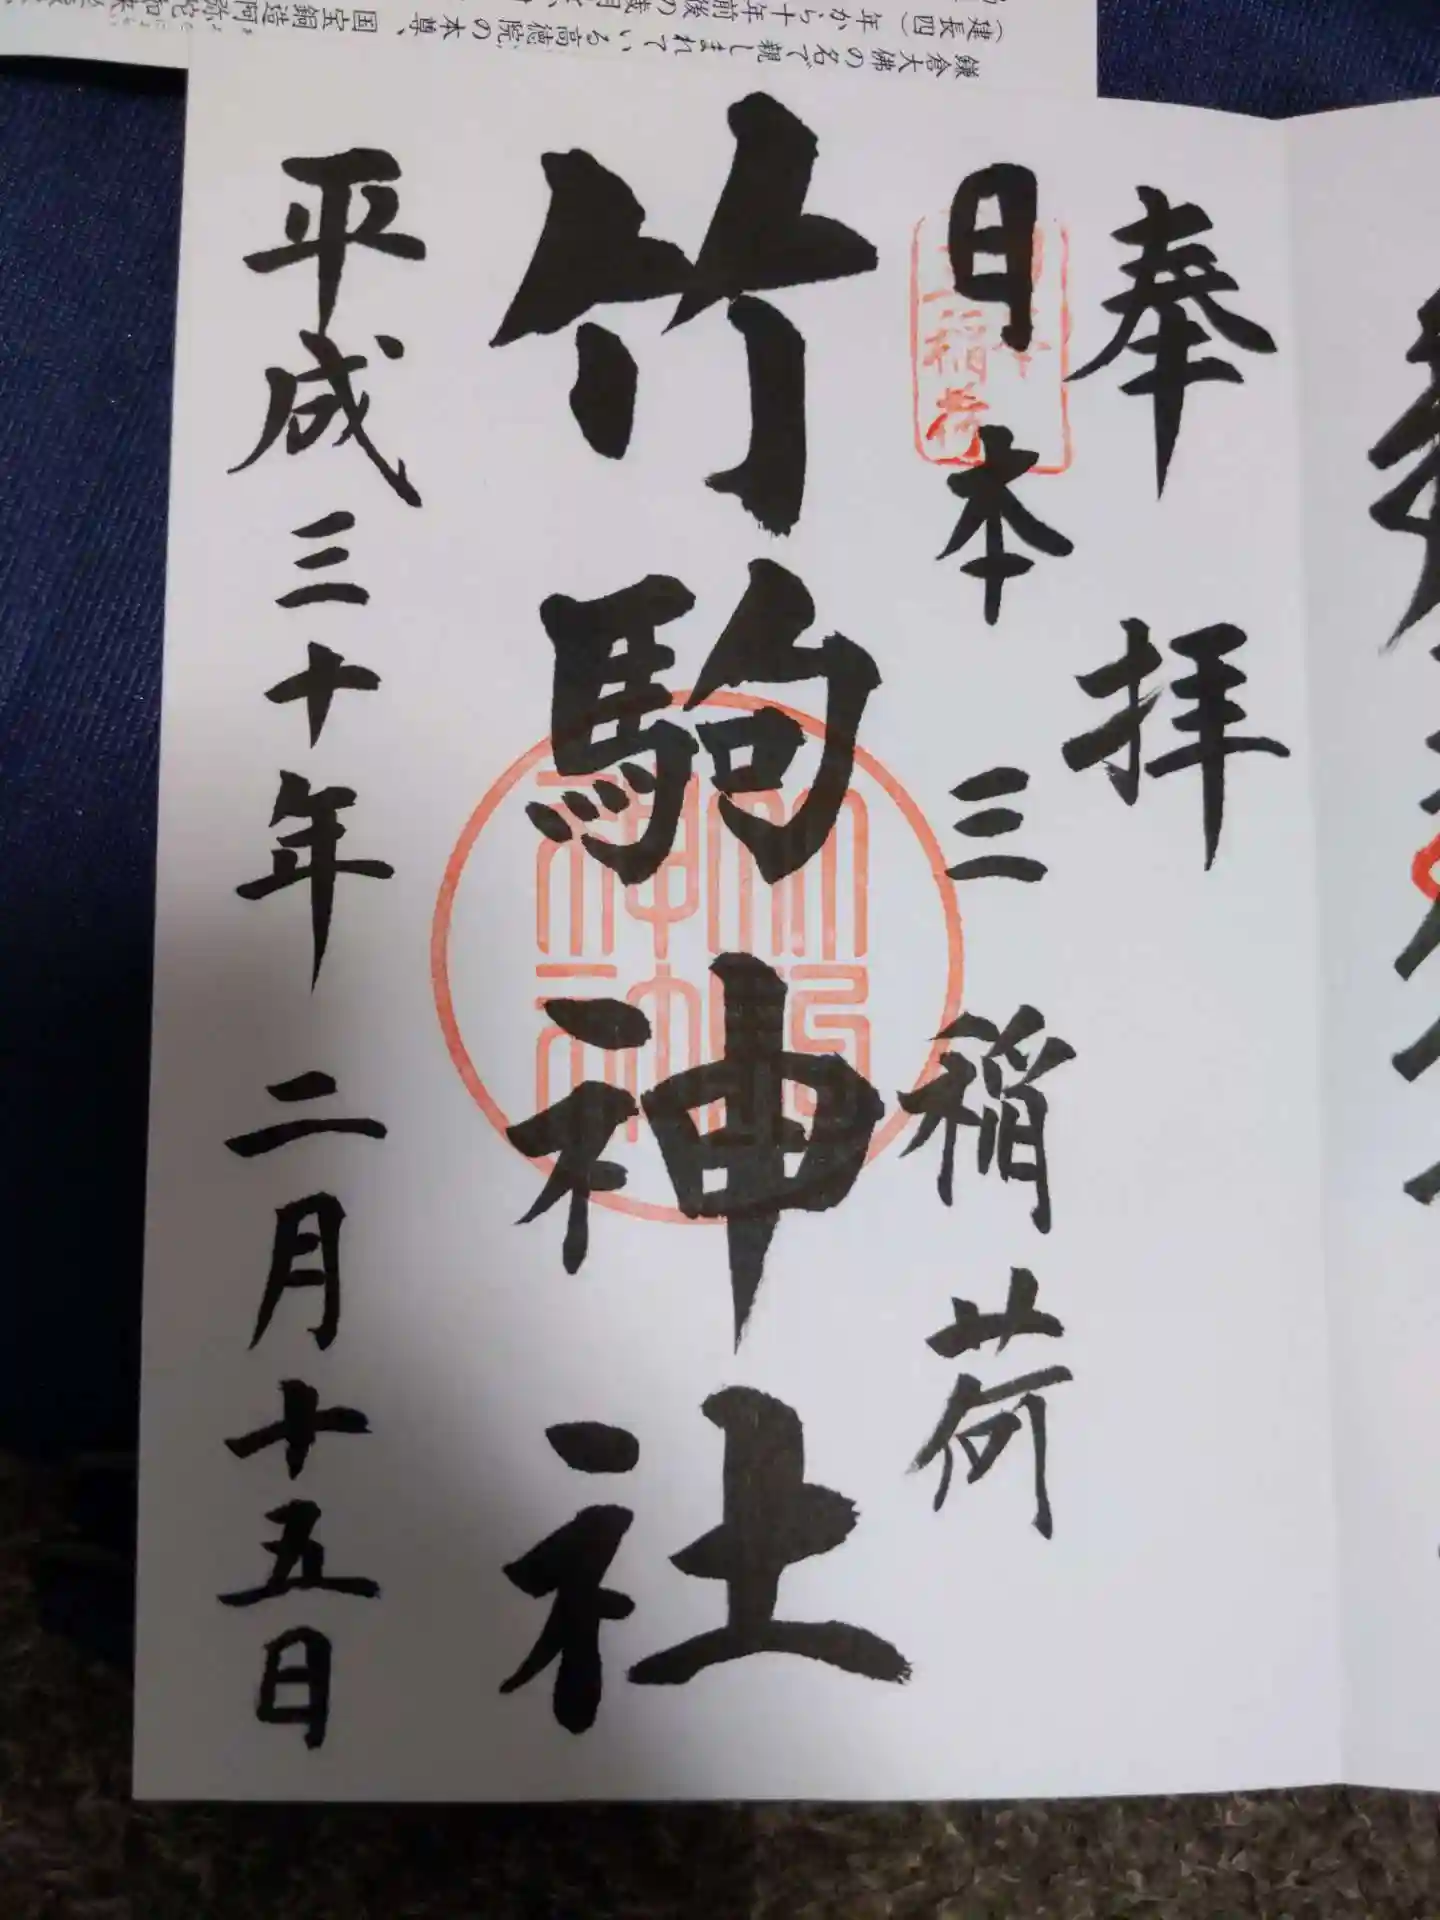 奉拝
日本三稲荷
竹駒神社
平成三十年二月十五日
竹駒神社
稲荷
鎌倉大佛の名で親しまれている高徳院の本尊、国宝銅造阿弥陀如来
（建長四）年から十年前後の歳月